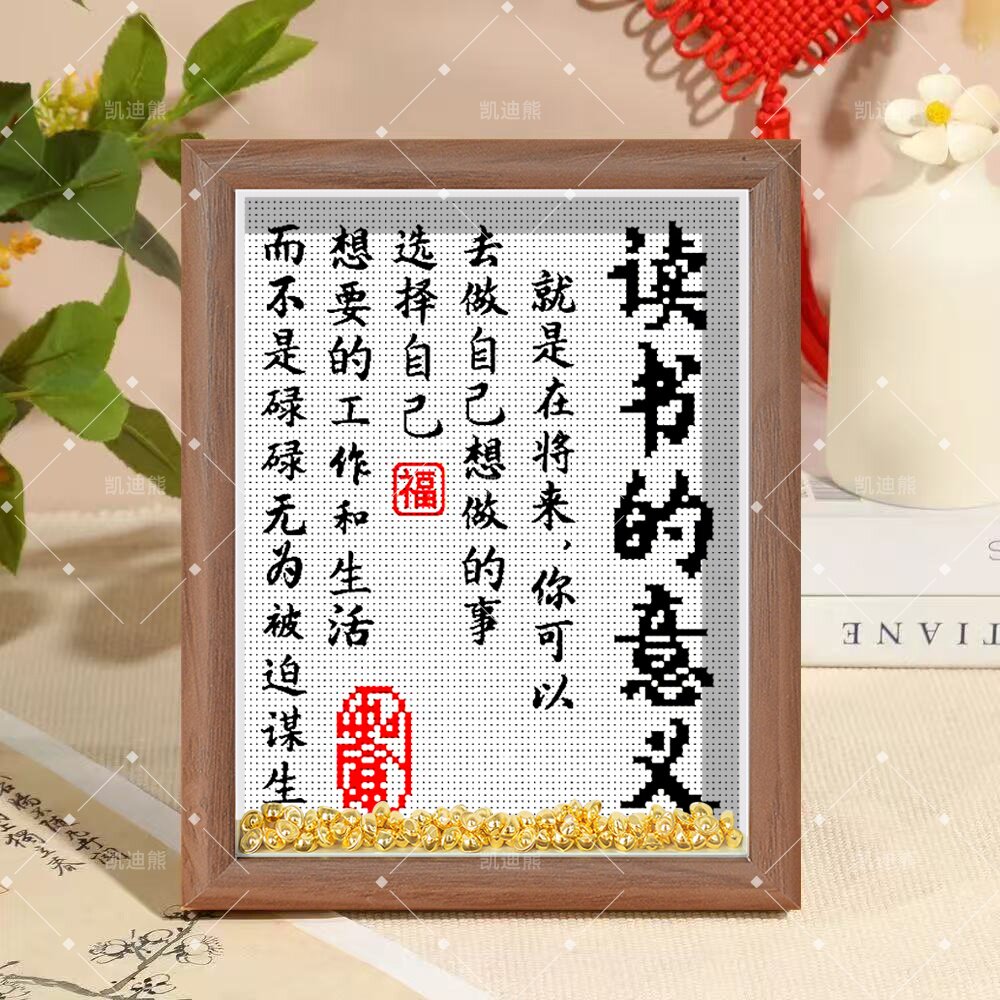 读书的意义
就是在将来，你可以
去做自己想做的事
选择自己
福
想要的工作和生活
而不是碌碌无为被迫谋生
TIANE
凯迪熊
凯迪熊
凯迪熊
凯迪熊
凯迪熊
凯迪熊
凯迪熊
凯迪熊
凯迪熊